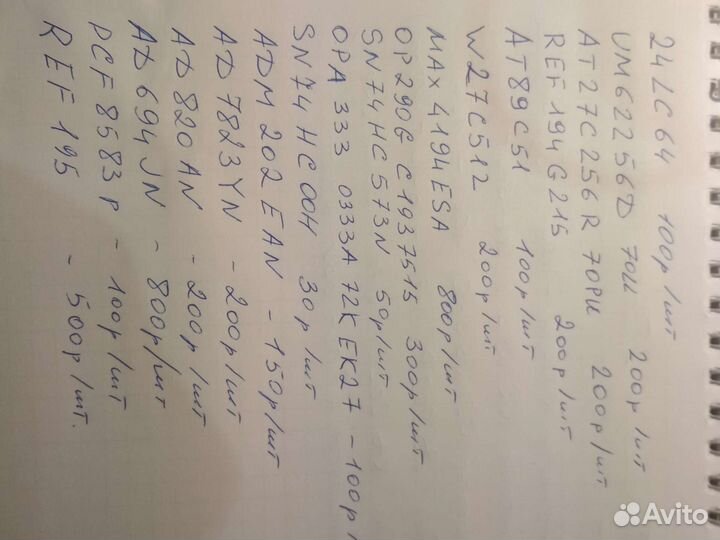 24LC64 100р/шт
UM62256D 70LL 200р/шт
AT27C256R 70PU 200р/шт.
REF194G215 200р/шт
AT89C51 100р/шт
W27C512 200р/шт
MAX4194ESA 800р/шт
OP290G C1937515 300р/шт
SN74HC573N 50р/шт
OPA 333 0333A 72K EK27 - 100р/
SN74HC00H 30р/шт
ADM202EAN - 150р/шт
AD7823YN - 200р/шт
AD820AN - 200р/шт
AD694JN - 800р/шт
PCF8583P - 100р/шт
REF195 - 500р/шт.
Avito